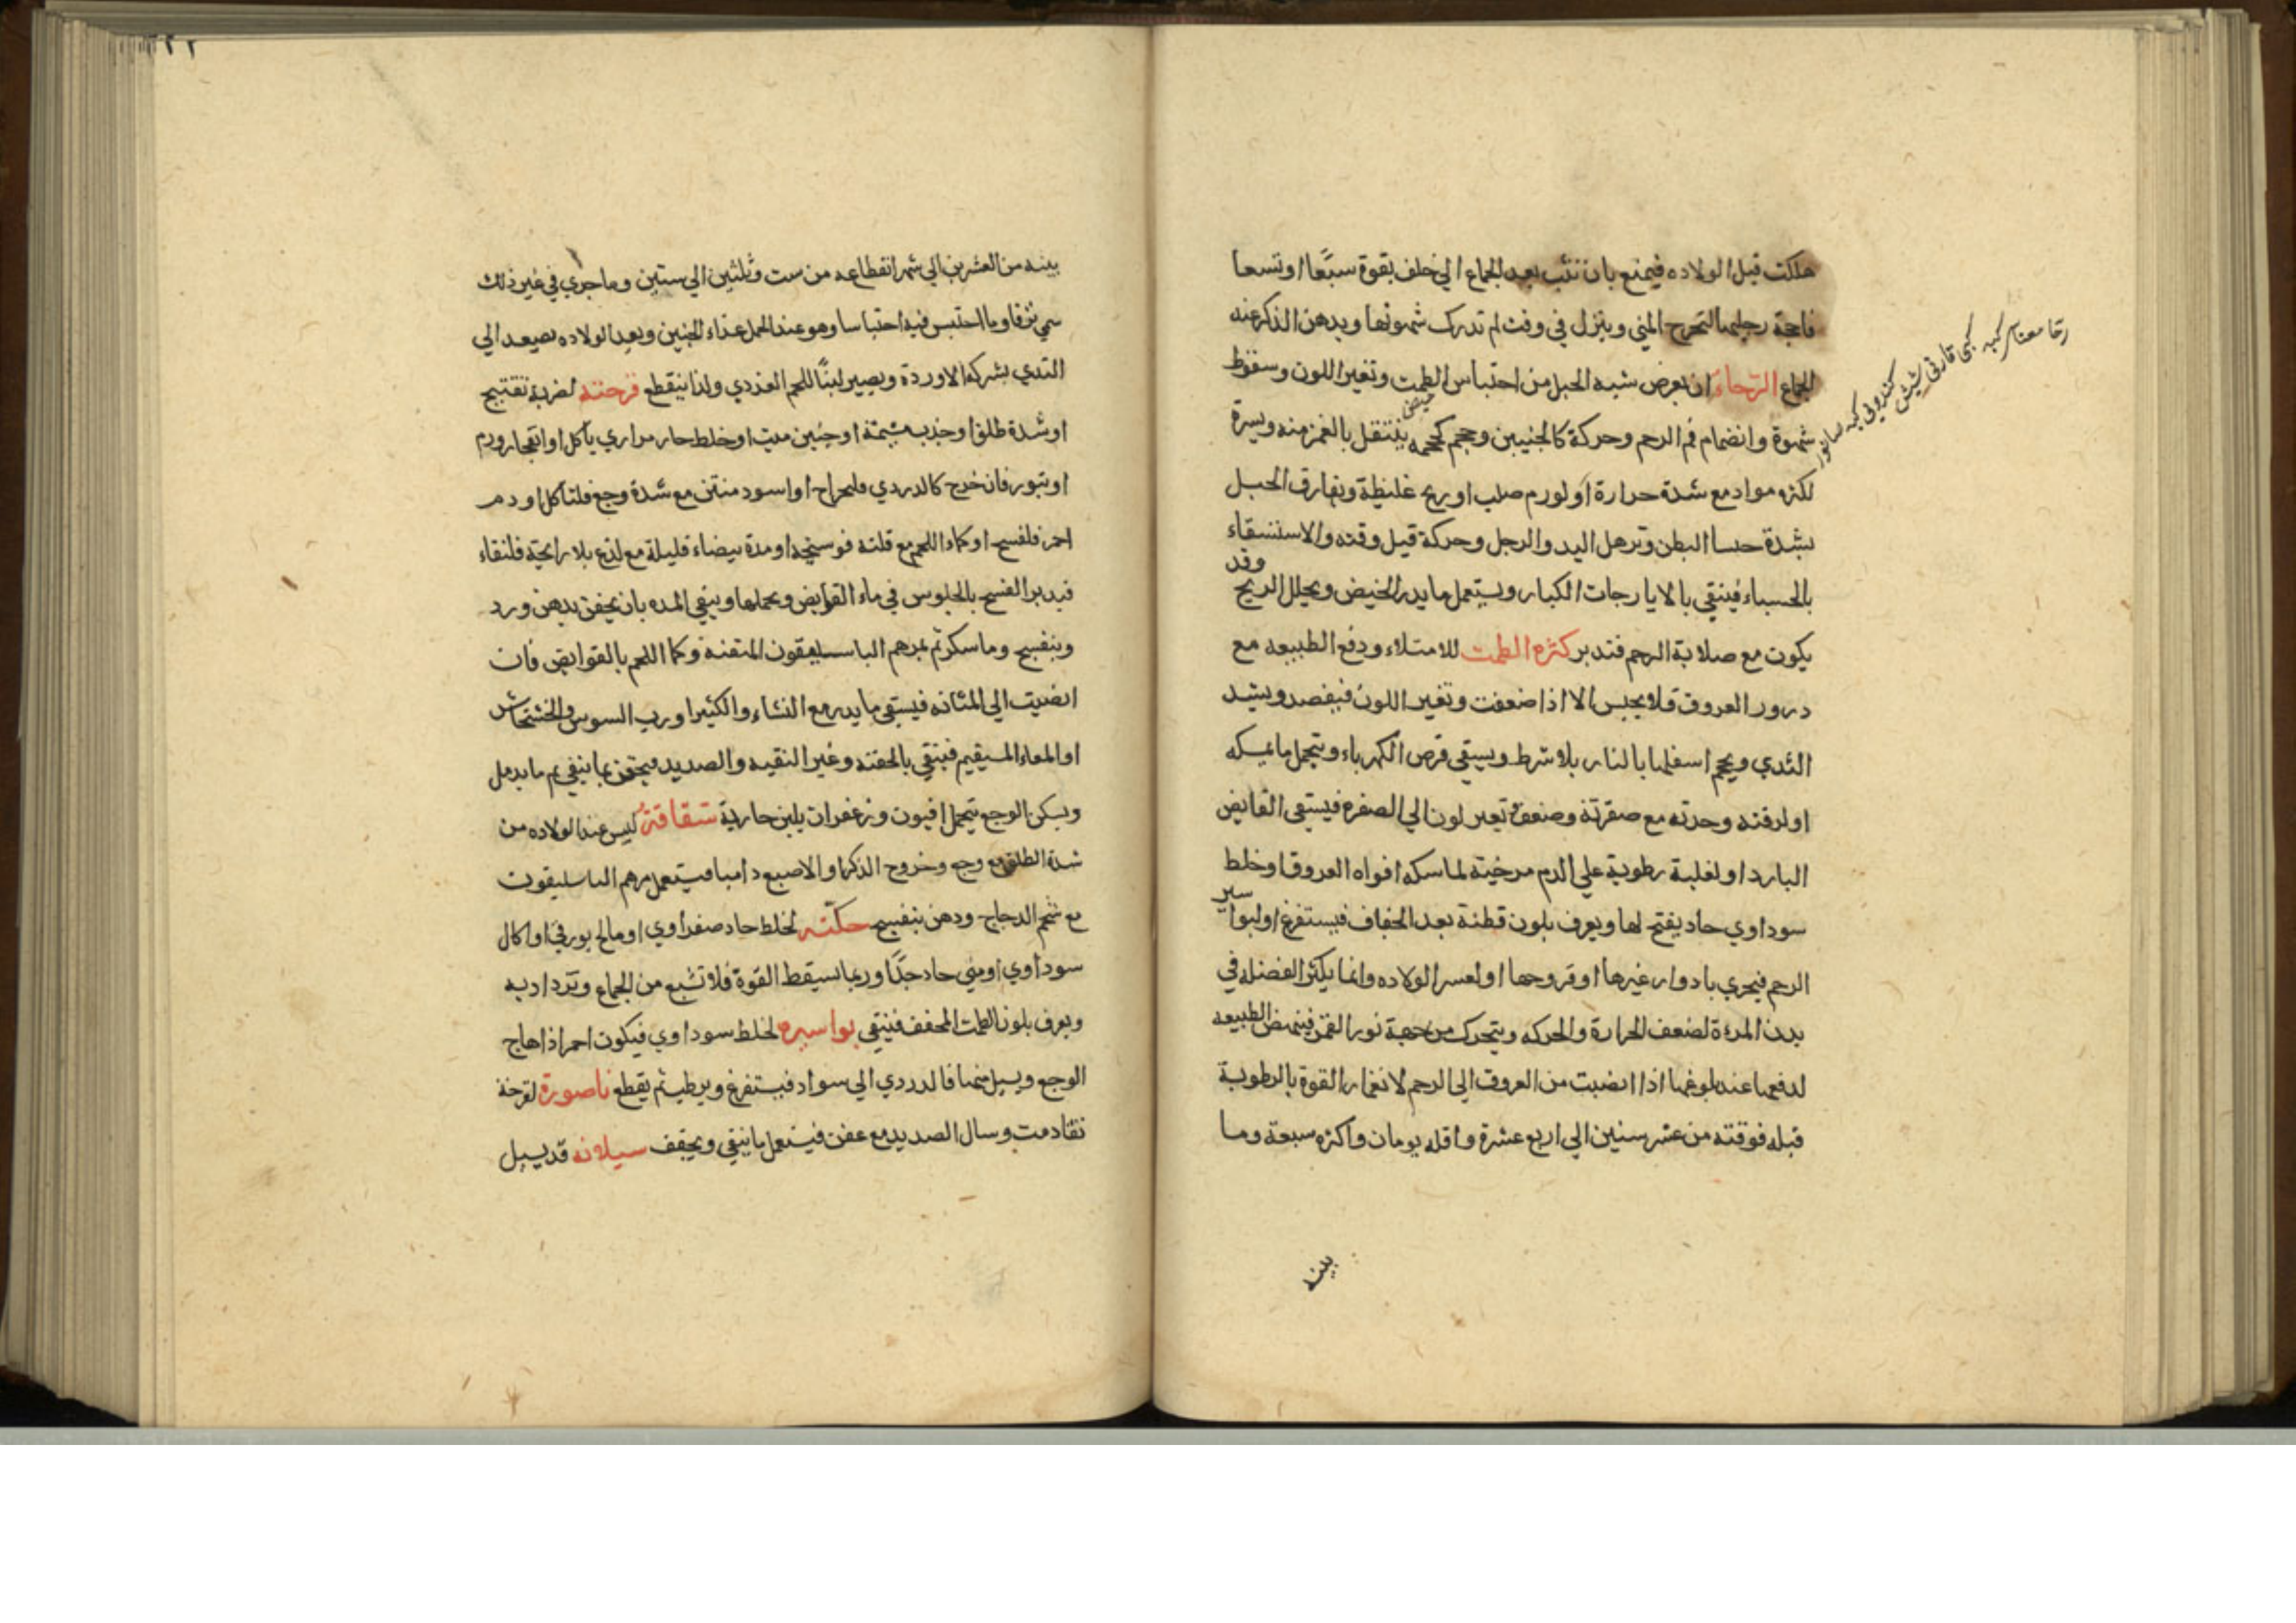 هلكت قبل الولاده فيمنع بان تثب بعد الجماع الي خلف بقوة سبعًا او تسعا
فاجة رجليها لتخرج المني وينزل في وقت لم تدرك شهوتها ويدهن الذكر عنه
الجماع الرحاء ان يعرض شبه الحبل من احتباس الطمث وتغير اللون وسقوط
شهوة وانضمام فم الرحم وحركة كالجنين وحجم كحجمه ينتقل بالغمز منه ويسرة
لكثره مواد مع شدة حرارة او لورم صلب او ريح غليظة ويفارق الحبل
بشدة حسا البطن وترهل اليد والرجل وحركة قبل وقته والاستسقاء
بالحساء فينقي بالايارجات الكبار ويستعمل ما يدر الحيض ويحلل الريح وقد
يكون مع صلابة الرحم فتدبر كثره الطمث للامتلاء ودفع الطبيعه مع
درور العروق فلا يحبس الا اذا ضعفت وتغير اللون فيفصد ويشد
الثدي ويحجم اسفلها بالنار بلا شرط ويسقي قرص الكهرباء ويتحمل ما يمسكه
او لرقته وحدته مع صفرته وضعف وتغير لون الي الصفره فيسقي القابض
البارد او لغلبة رطوبة علي الدم مرخية لماسكه افواه العروق او خلط
سوداوي حاد يفتح لها ويعرف بلون قطنة بعد الجفاف فيستفرغ او لبواسير
الرحم فيجري بادوار غيرها او قروحها او لعسر الولاده وانما يكثر الفضله في
بدن المرءة لضعف الحرارة والحركه ويتحرك من جهة نور القمر فينهض الطبيعه
لدفعها عند بلوغها اذا انضبت من العروق الي الرحم لانغمار القوة بالرطوبة
قبله فوقته من عشر سنين الي اربع عشرة واقله يومان واكثره سبعة وما
بينه
رحا معناسي كبه
بينه من العشرين الي شهر انقطاعه من ست وثلثين الي ستين وما جري في غير ذلك
سمي نزفا وما احتبس فيه احتباسا وهو عند الحمل غذاء الجنين وبعد الولاده يصعد الي
الثدي بشركه الاوردة ويصير لبنًا للحم الغددي ولذا ينقطع قرحته لضربة تفتح
او شدة طلق او جذب مشيمة او جنين ميت او خلط حار مراري يأكل او انفجار ورم
او تبور فان خرج كالدردي فلجراح او اسود منتن مع شدة وجع فلتاكل او دم
احمر فلفسح او كماء اللحم مع قلته فوسخة او مدة بيضاء قليلة مع لذع بلا رايحة فلنقاء
فيدبر الفسح بالجلوس في ماء القوابض ويحملها وينقي المده بان يحقن بدهن ورد
وبنفسج وماسكر ثم بمرهم الباسليقون المتقنه وكماء اللحم بالقوابض فان
انصبت الي المثانه فيسقي ما يدر مع النشاء والكثيرا ورب السوس والخشخاش
او المعاء المستقيم فينقي بالحقنه وغير النقيه والصديد فيحقن بما ينقي ثم ما يدمل
ويسكن الوجع بتحمل افيون وزعفران بلبن جارية شقاقة ليبس عند الولاده من
شدة الطلق مع وجع وخروج الذكر او الاصبع دامبا فيستعمل مرهم الباسليقون
مع شحم الدجاج ودهن بنفسج حكته لخلط حاد صفراوي او مالح بورقي او اكال
سوداوي او مني حاد جدًا وربما تسقط القوة فلا تشبع من الجماع وتزداد به
ويعرف بلون الطمث المجفف فينقي بواسيره لخلط سوداوي فيكون احمر اذا هاج
الوجع ويسيل منها فالدردي الي سواد فيستفرغ ويرطب ثم يقطع ناصورة لقرحة
تقادمت وسال الصديد مع عفن فيستعمل ما ينقي ويجفف سيلانه قد يسيل